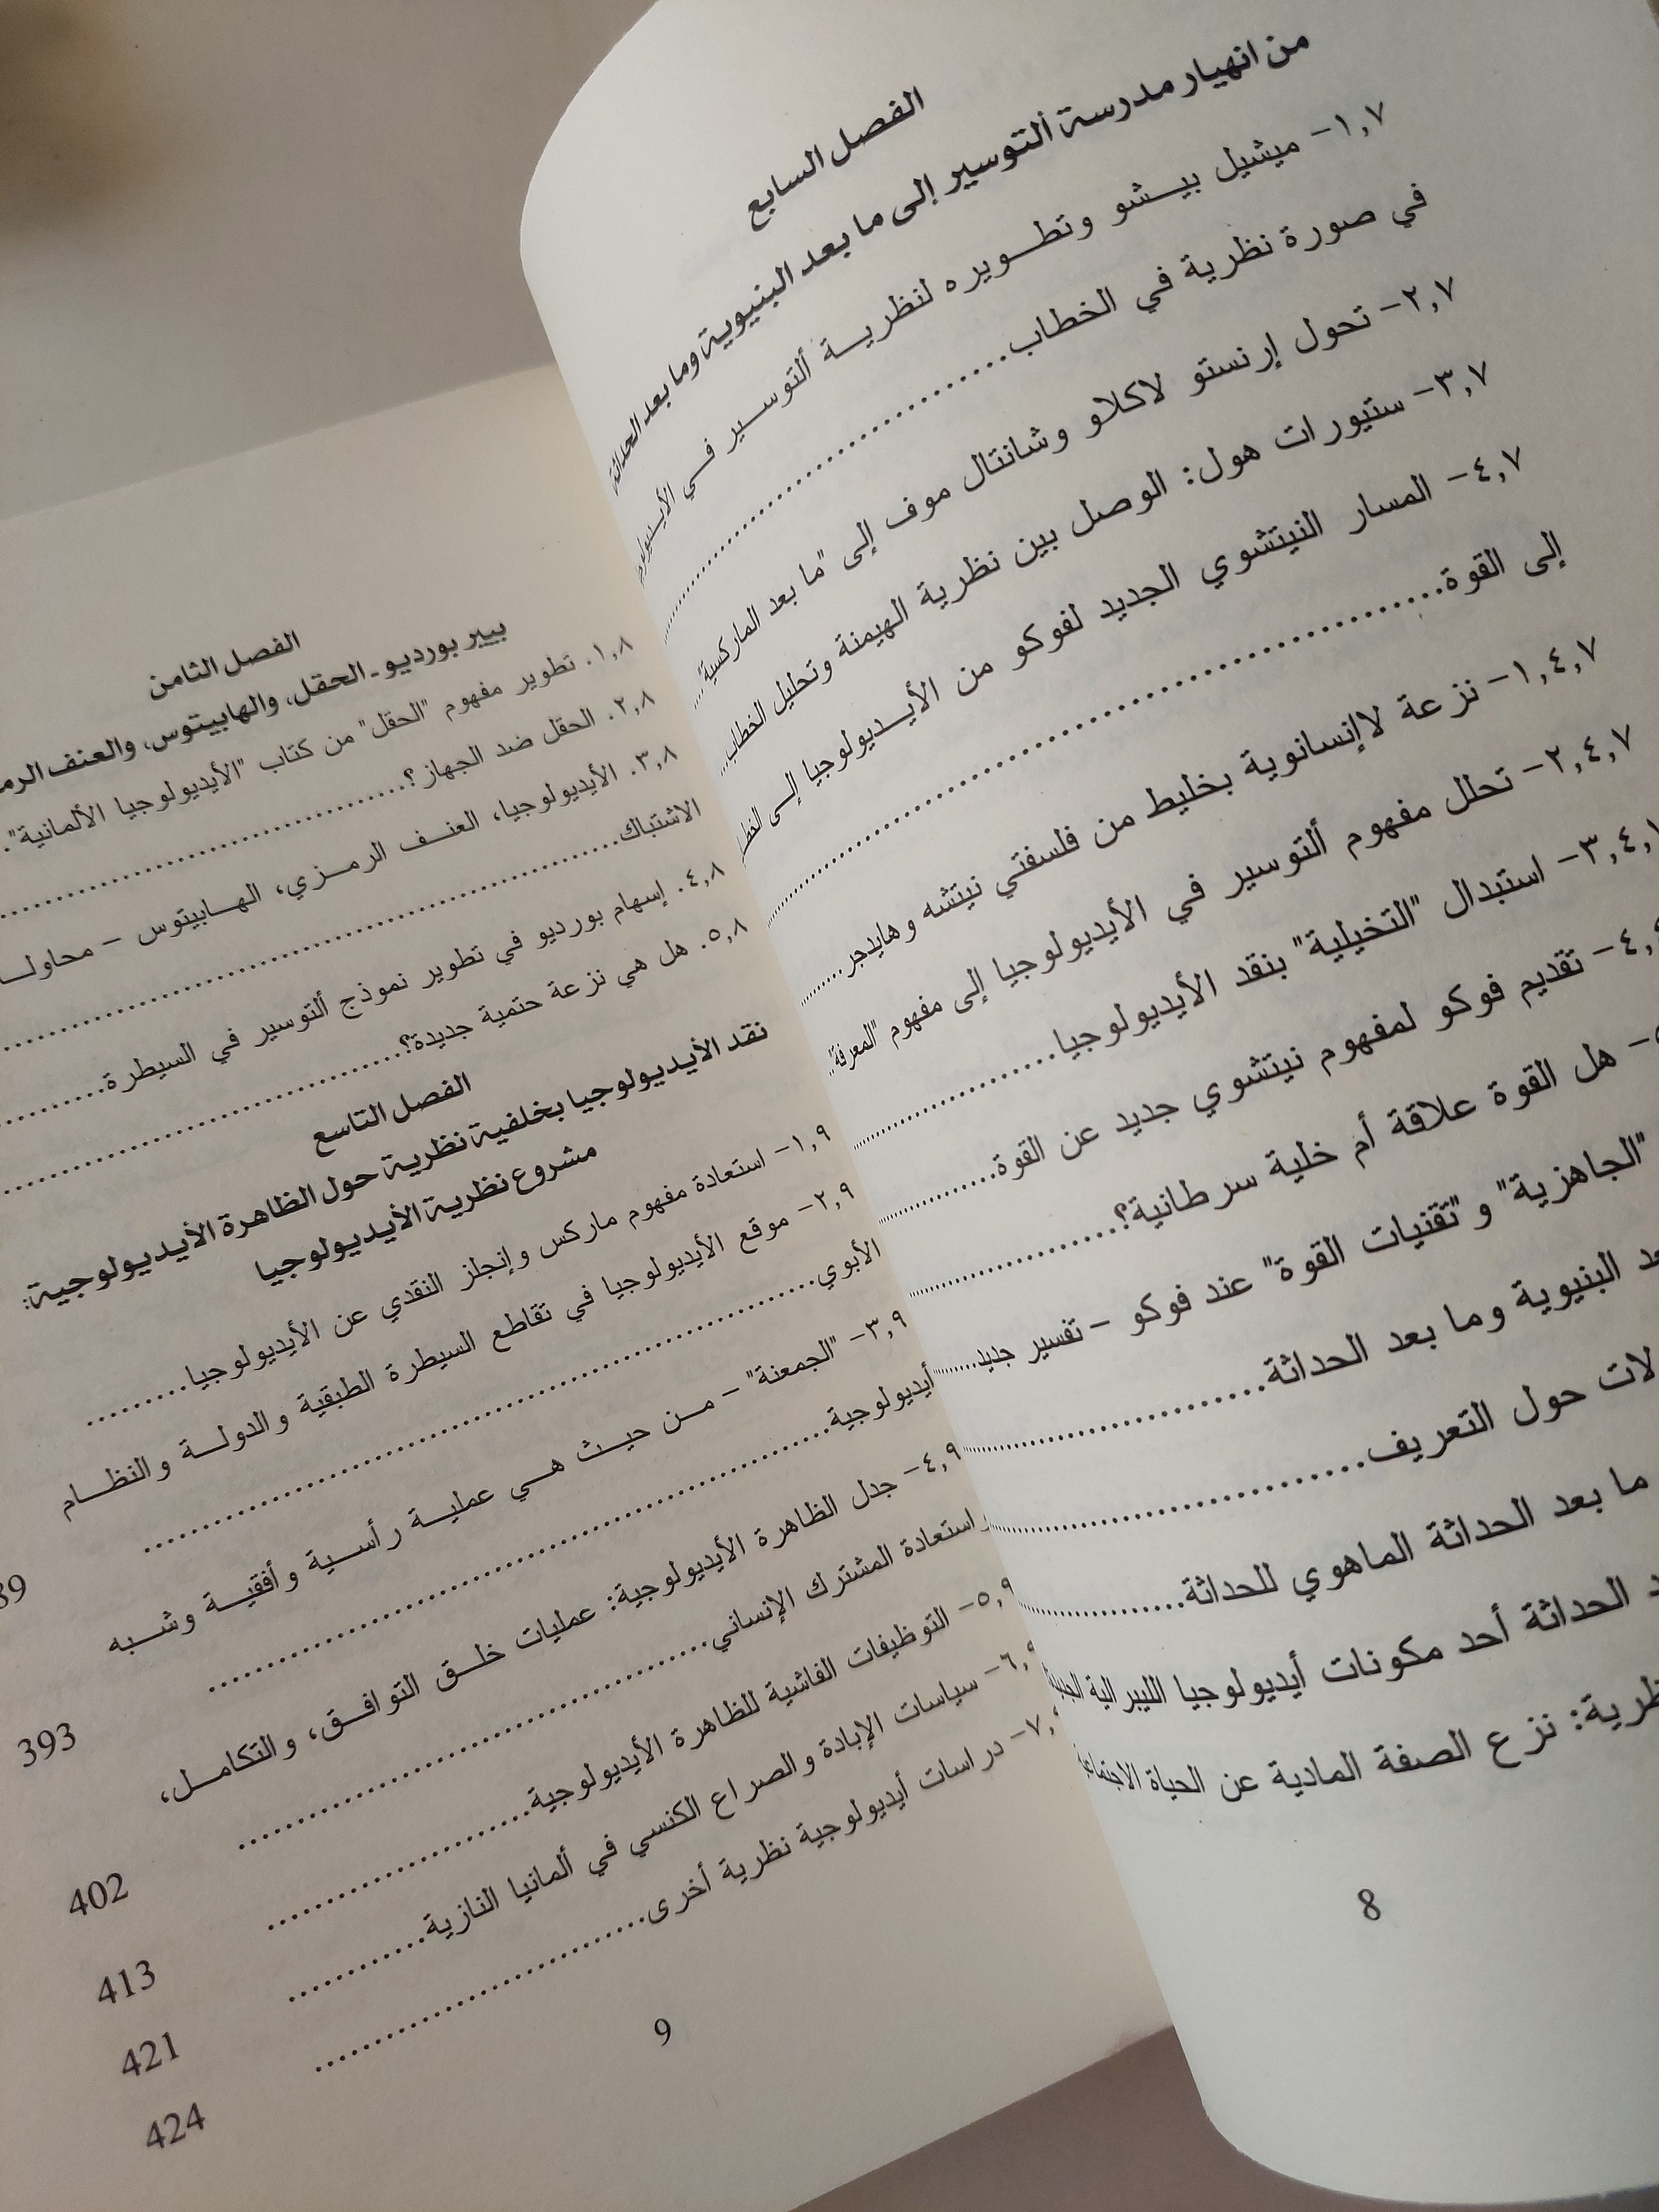 الفصل السابع
من انهيار مدرسة ألتوسير إلى ما بعد البنيوية وما بعد الحداثة
١,٧- ميشيل بيـشو وتطـويره لنظريـة ألتوسـير فـي
في صورة نظرية في الخطاب
٢,٧- تحول إرنستو لاكلاو وشانتال موف إلى "ما بعد الماركسية"
٣,٧- ستيورات هول: الوصل بين نظرية الهيمنة وتحليل الخطاب
٤,٧- المسار النيتشوي الجديد لفوكو من الأيـديولوجيا إلـى
إلى القوة
١,٤,٧- نزعة لاإنسانوية بخليط من فلسفتي نيتشه وهايدجر
٢,٤,٧- تحلل مفهوم ألتوسير في الأيديولوجيا إلى مفهوم "المعرفة"
٣,٤,٧- استبدال "التخيلية" بنقد الأيديولوجيا
- تقديم فوكو لمفهوم نيتشوي جديد عن القوة
- هل القوة علاقة أم خلية سرطانية؟
"الجاهزية" و"تقنيات القوة" عند فوكو - تفسير جديد
البنيوية وما بعد الحداثة
حول التعريف
ما بعد الحداثة الماهوي للحداثة
الحداثة أحد مكونات أيديولوجيا الليبرالية
نزع الصفة المادية عن الحياة
8
الفصل الثامن
بيير بورديو - الحقل، والهابيتوس، والعنف
١,٨. تطوير مفهوم "الحقل" من كتاب "الأيديولوجيا الألمانية".
٢,٨. الحقل ضد الجهاز؟
٣,٨. الأيديولوجيا، العنـف الرمـزي، الهـابيتوس -
الاشتباك
٤,٨. إسهام بورديو في تطوير نموذج ألتوسير في السيطرة
٥,٨. هل هي نزعة حتمية جديدة؟
الفصل التاسع
نقد الأيديولوجيا بخلفية نظرية حول الظاهرة الأيديولوجية:
مشروع نظرية الأيديولوجيا
١,٩- استعادة مفهوم ماركس وإنجلز النقدي عن الأيديولوجيا
٢,٩- موقع الأيديولوجيا في تقاطع السيطرة الطبقية والدولـة والنظـام
الأبوي
٣,٩- "الجمعنة" - مـن حيـث هـي عمليـة رأسـية وأفقيـة وشـبه
أيديولوجية 393
٤,٩- جدل الظاهرة الأيديولوجية: عمليات خلـق التوافـق، والتكامـل،
واستعادة المشترك الإنساني 402
٥,٩- التوظيفات الفاشية للظاهرة الأيديولوجية 413
٦,٩- سياسات الإبادة والصراع الكنسي في ألمانيا النازية 421
- دراسات أيديولوجية نظرية أخرى 424
9